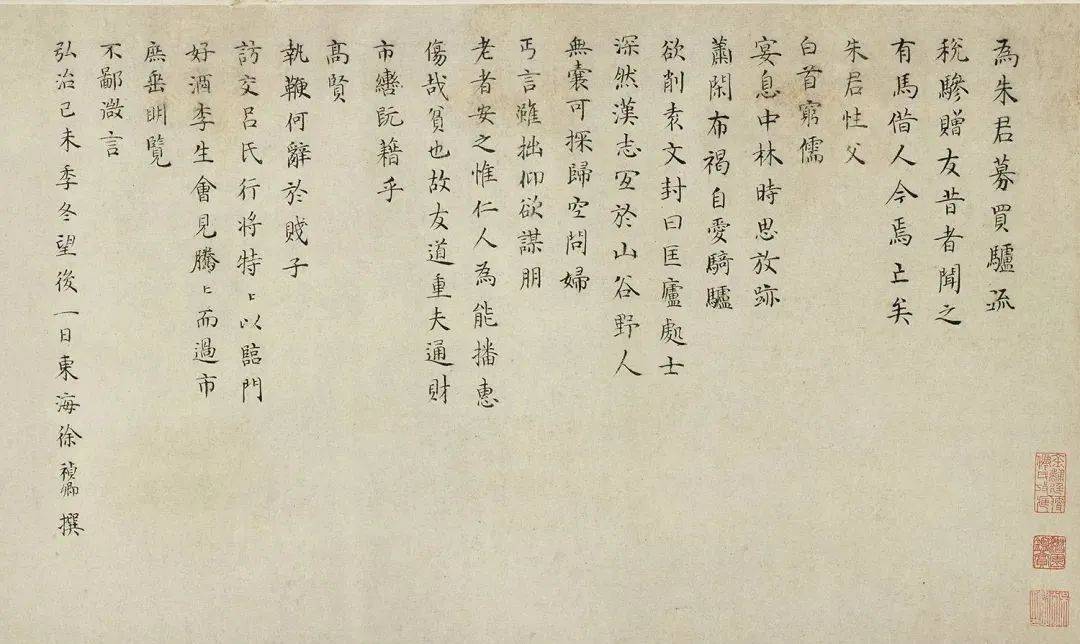 為朱君募買驢疏
稅驂贈友昔者聞之
有馬借人今焉亡矣
朱君性父
白首窮儒
宴息中林時思放跡
蕭閑布褐自愛騎驢
欲削袁文封曰匡廬處士
深然漢志宜於山谷野人
無囊可探歸空問婦
丐言雖拙仰欲謀朋
老者安之惟仁人為能播惠
傷哉貧也故友道重夫通財
市轡阮籍乎
高賢
執鞭何辭於賤子
訪交呂氏行將特〻以臨門
好酒李生會見騰〻而過市
庶垂明覽
不鄙微言
弘治己未季冬望後一日東海徐禎卿撰